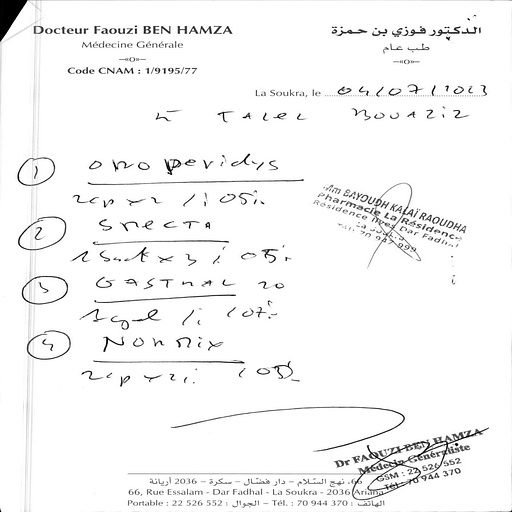 Docteur Faouzi BEN HAMZA
Médecine Générale
Code CNAM : 1/9195/77
الدكتور فوزي بن حمزة
طب عام
La Soukra, le 04/07/2023
TALEL BOUAZIZ
1 oroperidys
2cp x 2 /j 05j.
2 SMECTA
1 Sach x 3 j 05j.
3 GASTRAL 20
1 gel /j 07j.
4
2cp x 2 j. 05j
Mm BAYOUDH KALAÏ RAOUDHA
Pharmacie La Résidence
Dar Fadhal
Dr FAOUZI BEN HAMZA
Médecin Généraliste
GSM : 22 526 552
Tél : 70 944 370
66، نهج السّلام - دار فضّال - سكرة - 2036 أريانة
66, Rue Essalam - Dar Fadhal - La Soukra - 2036 Ariana
Portable : 22 526 552 : الجوال - Tél. : 70 944 370 : الهاتف